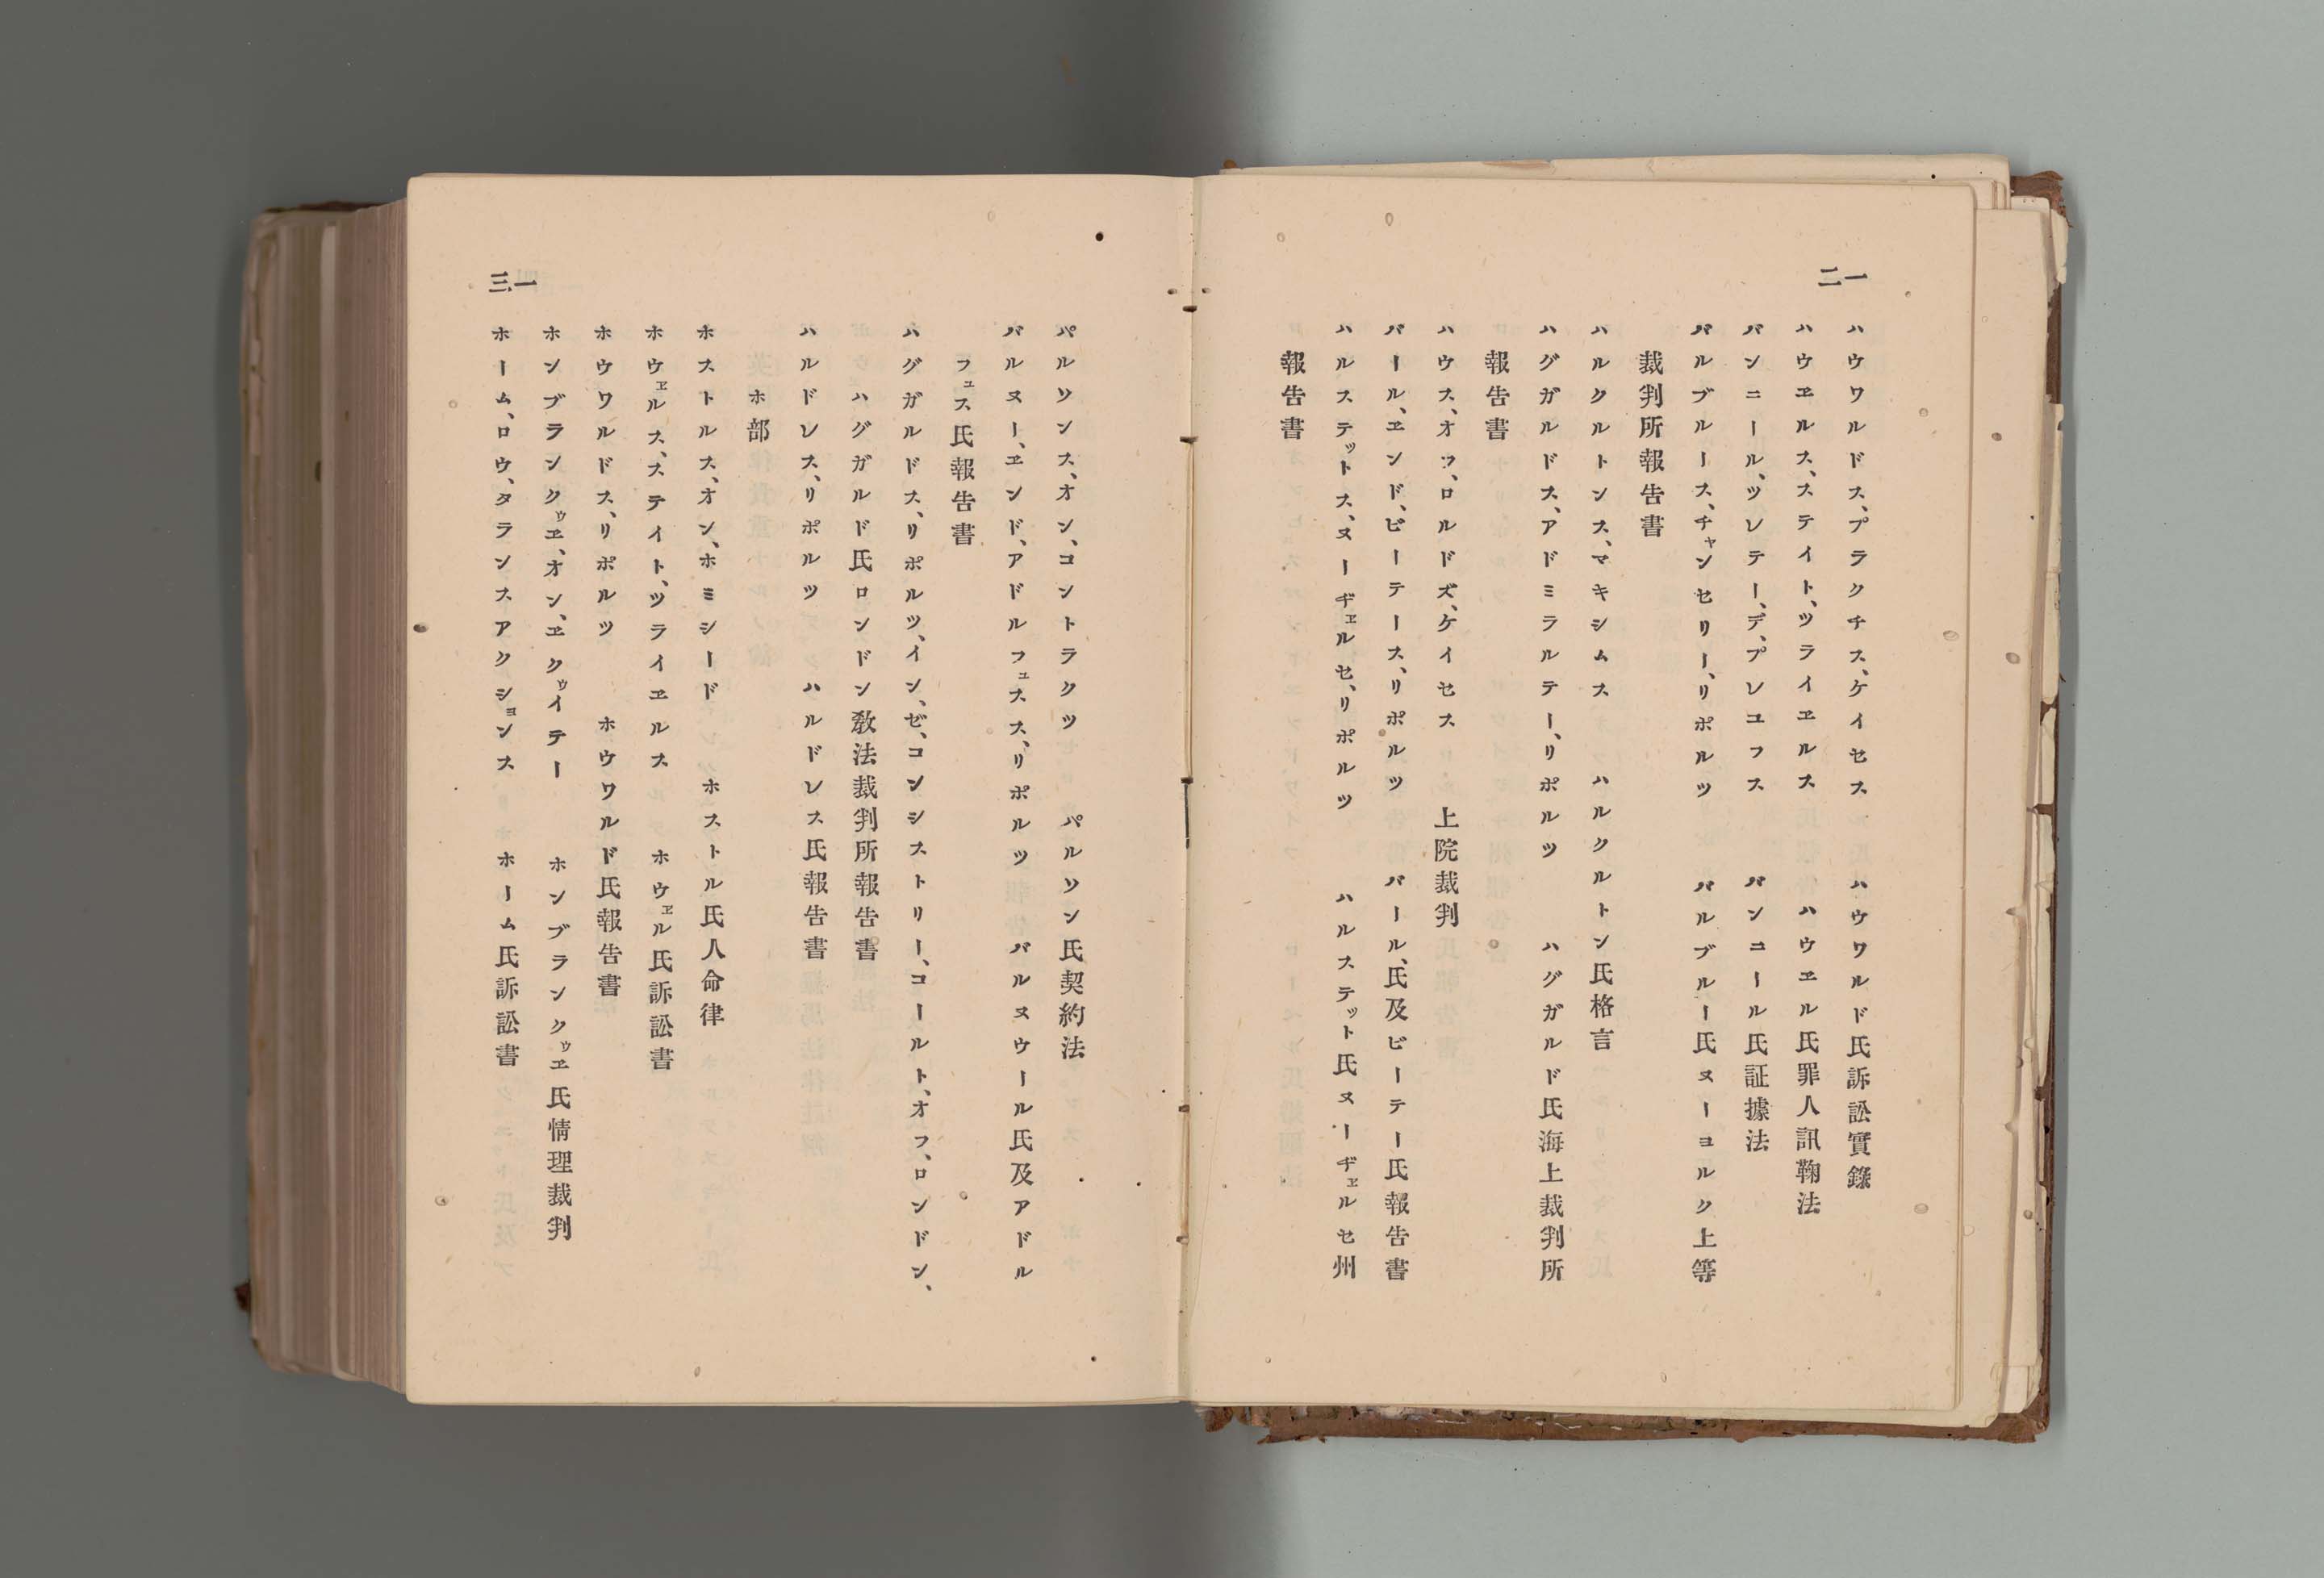 一二
ハウワルドス、プラクチス、ケイセス　ハウワルド氏訴訟實錄
ハウヱルス、ステイト、ツライヱルス　ハウヱル氏罪人訊鞠法
バンニール、ツレテー、デ、プレユフス　バンニール氏証據法
バルブルース、チャンセリー、リポルツ　バルブルー氏ヌーヨルク上等
裁判所報告書
ハルクルトンス、マキシムス　ハルクルトン氏格言
ハグガルドス、アドミラルテー、リポルツ　ハグガルド氏海上裁判所
報告書
ハウス、オフ、ロルドズ、ケイセス　上院裁判
バール、ヱンド、ビーテース、リポルツ　バール、氏及ビーテー氏報告書
ハルステットス、ヌーヂヱルセ、リポルツ　ハルステット氏ヌーヂヱルセ州
報告書
一三
パルソンス、オン、コントラクツ　パルソン氏契約法
バルヌー、ヱンド、アドルフュスス、リポルツ　バルヌウール氏及アドル
フュス氏報告書
ハグガルドス、リポルツ、イン、ゼ、コンシストリー、コールト、オフ、ロンドン、
ハグガルド氏ロンドン敎法裁判所報告書
ハルドレス、リポルツ　ハルドレス氏報告書
ホ部
ホストルス、オン、ホミシード　ホストル氏人命律
ホウヱルス、ステイト、ツライヱルス　ホウヱル氏訴訟書
ホウワルドス、リポルツ　ホウワルド氏報告書
ホンブランクゥヱ、オン、ヱクゥイテー　ホンブランクゥヱ氏情理裁判
ホーム、ロウ、タランスアクションス　ホーム氏訴訟書